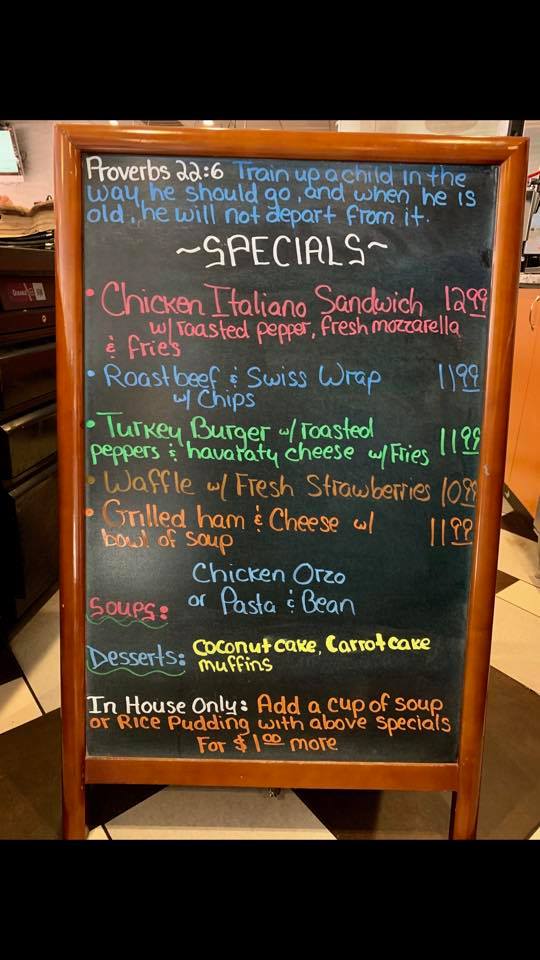 Proverbs 22:6 Train up a child in the
way he should go, and when he is
old, he will not depart from it.
~SPECIALS~
• Chicken Italiano Sandwich 12 99
w/ roasted pepper, fresh mozzarella
& fries
• Roastbeef & Swiss Wrap 11 99
w/ Chips
• Turkey Burger w/ roasted
peppers & havaraty cheese w/ Fries 11 99
• Waffle w/ Fresh Strawberries 10 99
• Grilled ham & Cheese w/ 11 99
bowl of soup
Chicken Orzo
Soups: or Pasta & Bean
Desserts: Coconut cake, Carrot cake
muffins
In House Only: Add a cup of soup
or Rice Pudding with above specials
For $1 00 more